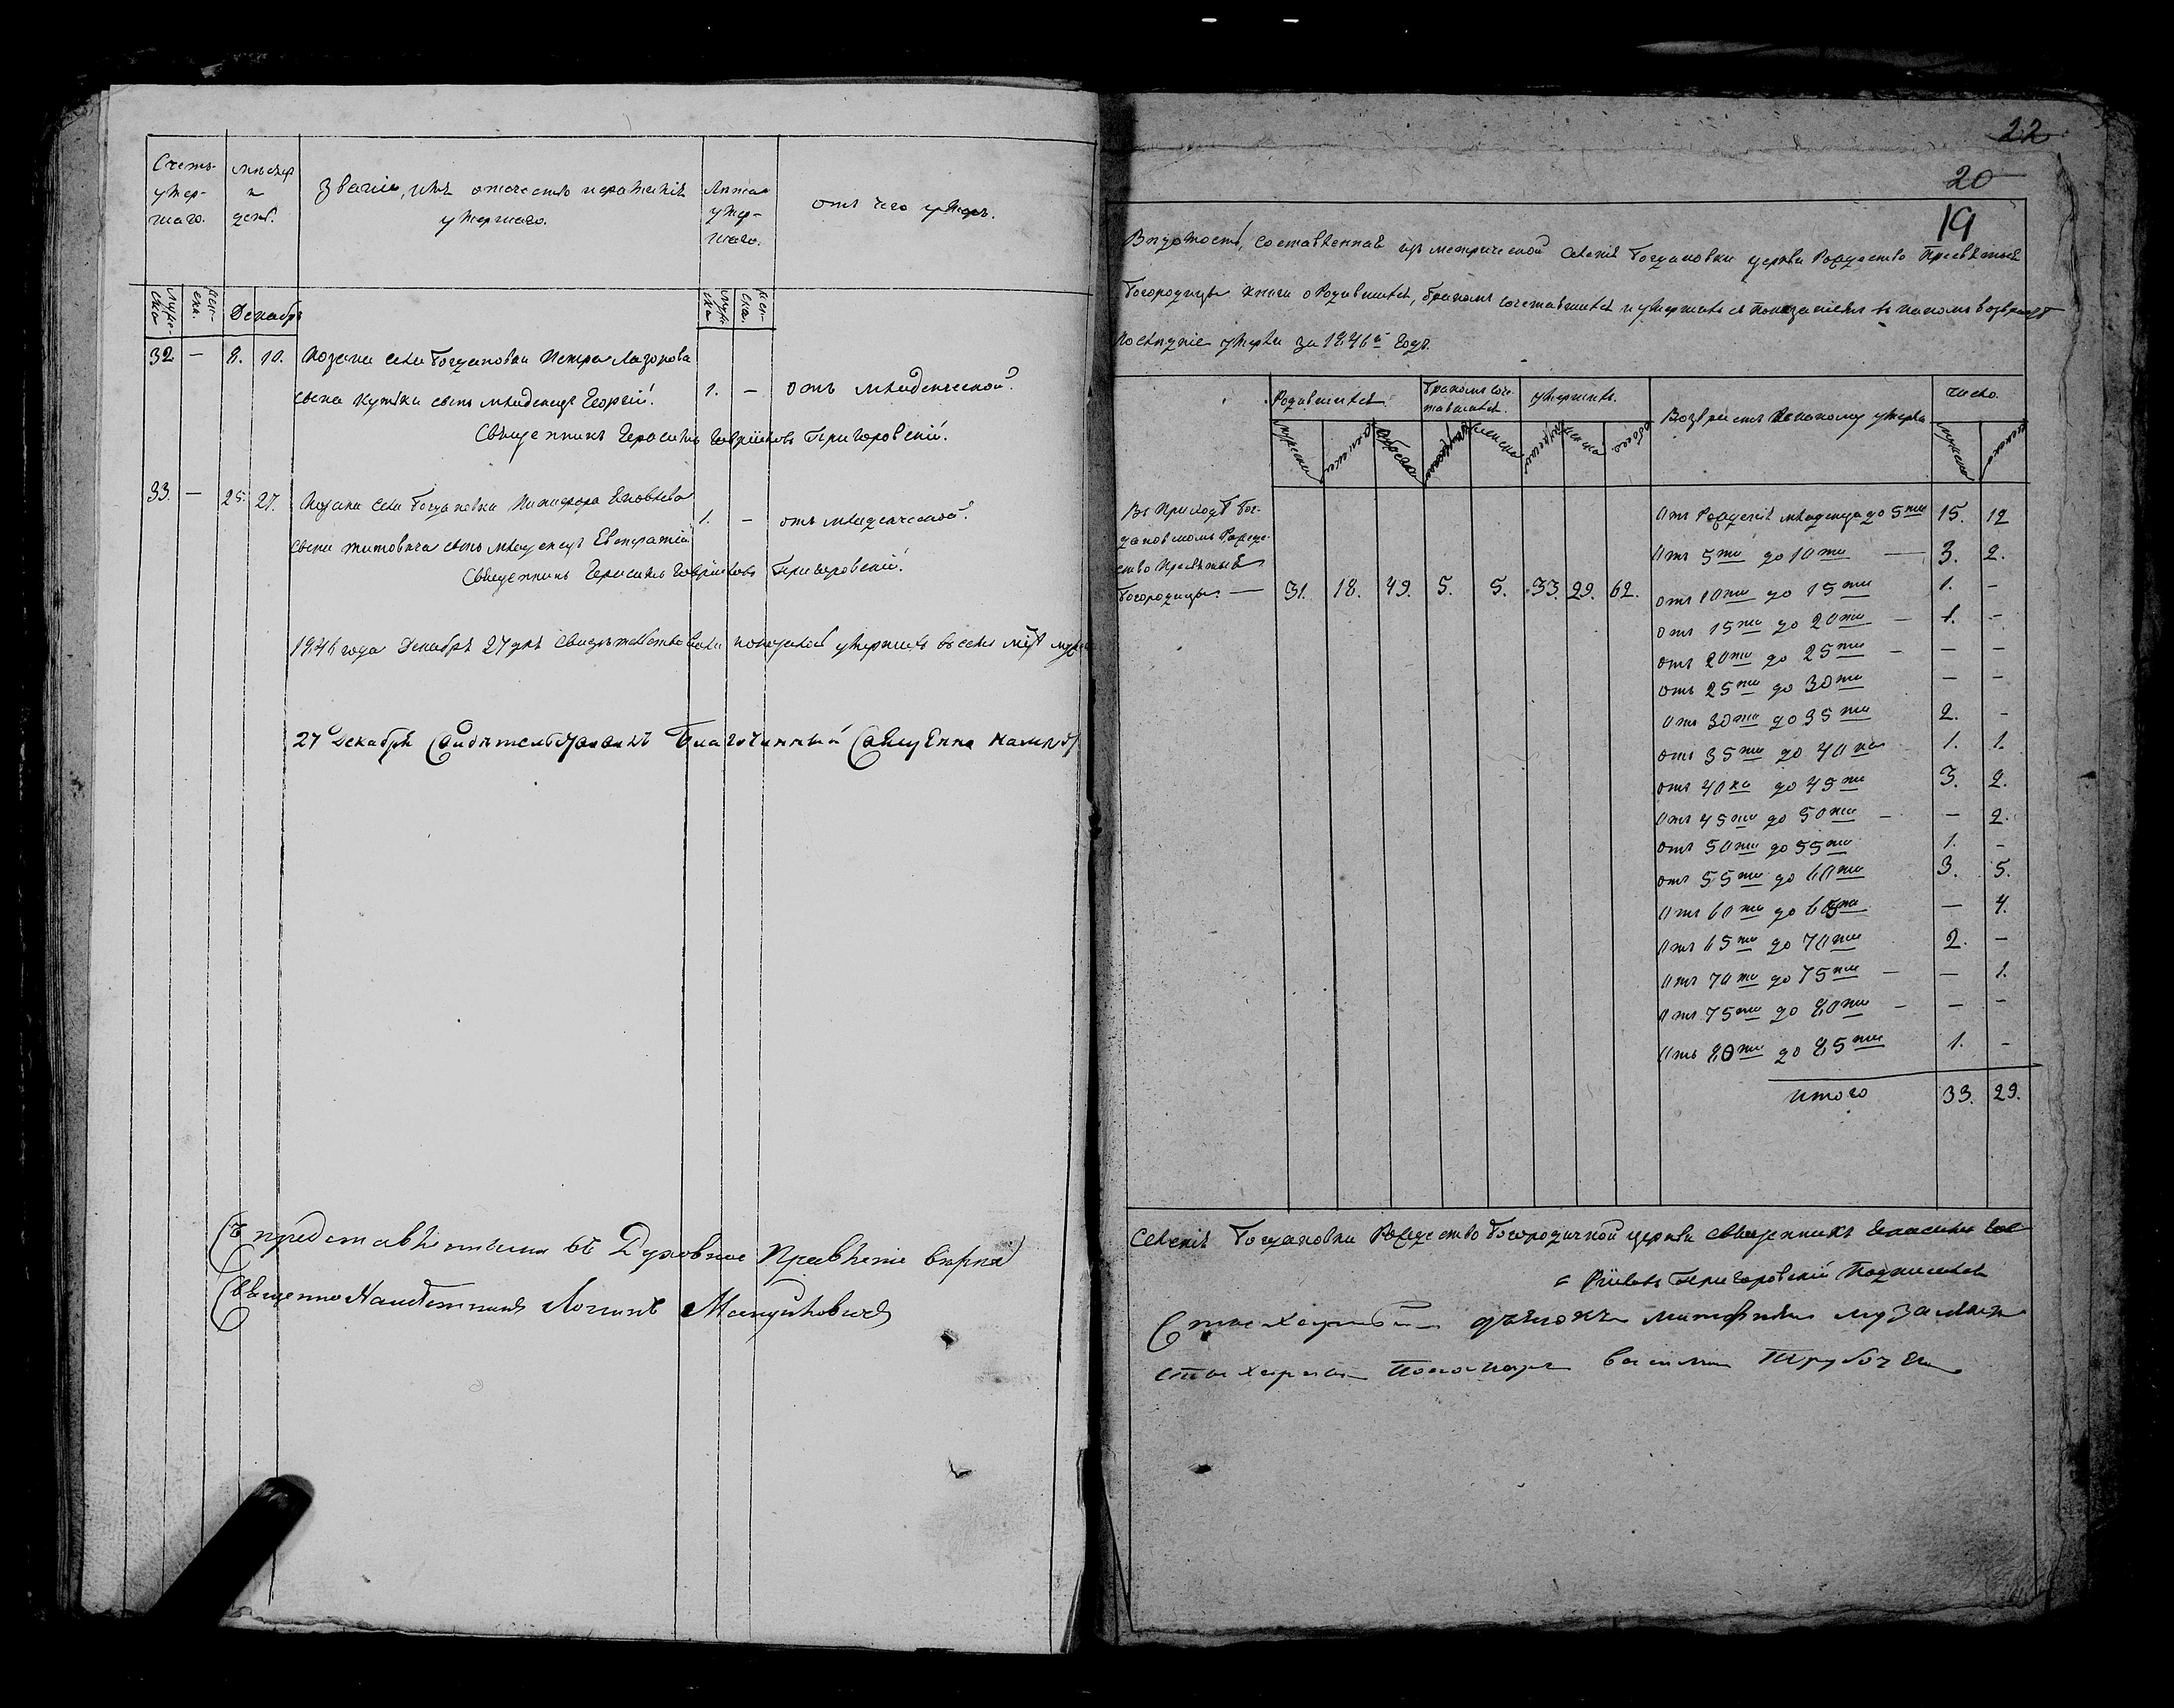 Счетъ умер-шаго.
мѣсяцъ и день.
Званіе, имя отечество и фамилія умершаго.
лѣта умер-шаго.
отъ чего умеръ.
муже-ска
жен-ск.
Декабрь
муж-ска
жен-ска.
32 — 8. 10. Козака села Богдановки Петра Лазорова
сына сынъ младенецъ Георгій. 1. — отъ младенческой.
Священникъ Герасимъ Григоровскій.
33. — 25. 27. Козака села Богдановки Никифора Яковлева
сына Титовича сынъ младенецъ Евстратій 1. — отъ младенческой.
Священникъ Герасимъ Григоровскій.
1846 года Декабря 27 дня Свидѣтельствовалъ показаныхъ умершихъ въ семъ
27 Декабря Свидѣтельствовалъ Благочинный Священно
Съ представленными въ Духовное Правленіе вѣрна
Священно Намѣстникъ Логинъ
22
20
19
Вѣдомость, составленная изъ метрической Селенія Богдановки церкви Рождество Пресвятыя
Богородицы книги о Родившихся, бракомъ сочетавшихся и умершихъ съ показаніемъ въ какомъ возврастѣ
послѣдніе умерли за 1846й Годъ.
Родившихся.
бракомъ соче-тавшихся.
умершихъ.
Возврастъ въ какому умерли
число.
мужска женска обоего мужска женска мужска женска обоего. мужска женска
Въ Приходѣ Бог-
дановскомъ Рожде-
ство Пресвятыя
Богородицы. — 31. 18. 49. 5. 5. 33. 29. 62.
Отъ Рожденія младенца до 5ти 15. 12
Отъ 5ти до 10ти — 3. 2.
Отъ 10ти до 15ти 1. -
Отъ 15ти до 20ти — 1. -
Отъ 20ти до 25ти — — -
Отъ 25ти до 30ти — -
Отъ 30ти до 35ти 2. -
Отъ 35ти до 40ка 1. 1.
Отъ 40ка до 45ти 3. 2.
Отъ 45ти до 50ти — — 2.
Отъ 50ти до 55ти 1. -
Отъ 55ти до 60ти 3. 5.
Отъ 60ти до 65ти — 4.
Отъ 65ти до 70ти 2. —
Отъ 70ти до 75ти — — 1.
Отъ 75ти до 80ти — — -
Отъ 80ти до 85ти 1. -
Итого 33. 29.
Селенія Богдановки Рождество Богородичной церкви священникъ Герасимъ
Григоровскій Подписался
дьячокъ
Пономарь Василій